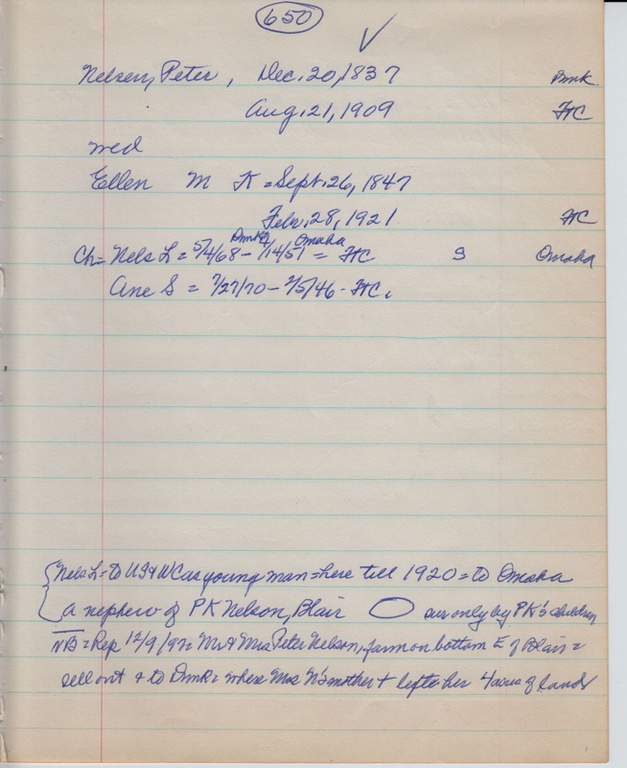 650 ✓
Nelsen, Peter, Dec. 20, 1837 Dmk
Aug. 21, 1909 HC
wed
Ellen M K = Sept. 26, 1847
Feb. 28, 1921 HC
Dmk Omaha
Ch = Nels L = 5/4/68 - /14/51 = HC S Omaha
Ane S = 7/27/70 - 2/5/46 - HC.
Nels L = to US & WC as young man = here till 1920 = to Omaha
a nephew of PK Nelson, Blair sur only by PK's children
NB = Rep 12/9/97 = Mr & Mrs Peter Nelson, farm on bottom E of Blair =
sell out & to Dmk = where Mrs N's mother + left her 4 acres of land